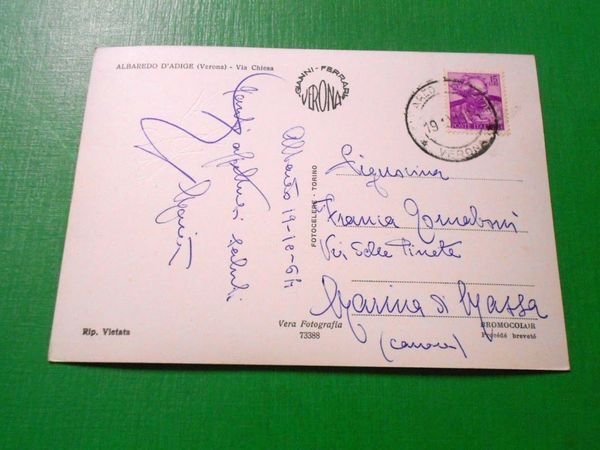 ALBAREDO D'ADIGE (Verona) - Via Chiesa
GIANNI - FERRARI
VERONA
15
POSTE ITALIANE
19
VERONA
Albaredo 19-10-64
saluti
Maria
FOTOCELERE - TORINO
Signorina
Franca
Via delle Pinete
Marina di Massa
(Carrara)
Rip. Vietata
Vera Fotografia
73388
BROMOCOLOR
Procédé breveté